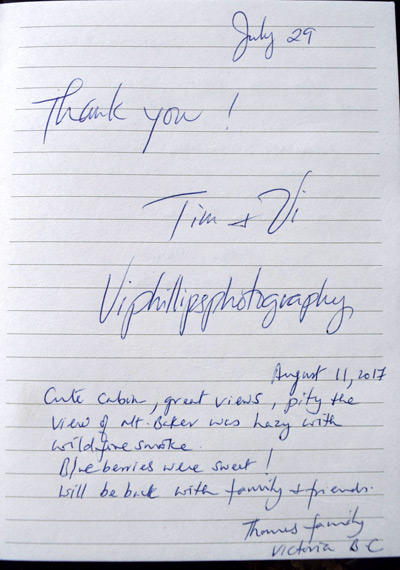 July 29
Thank you!
Tim + Vi
Viphillipsphotography
August 11, 2017
Cute cabin, great views, pity the
view of Mt. Baker was hazy with
wildfire smoke.
Blueberries were sweet!
Will be back with family + friends.
Thomas family
Victoria BC